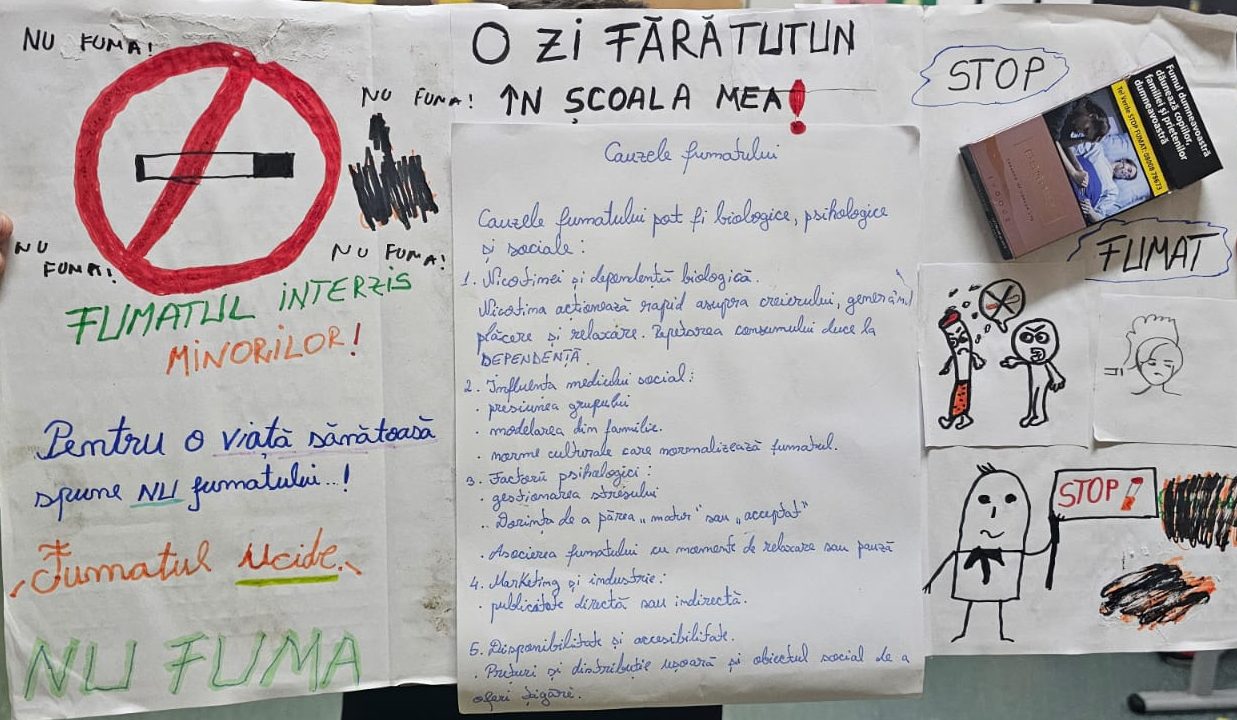 NU FUMA!
O ZI FĂRĂ TUTUN
NU FUMA! ÎN ȘCOALA MEA!
NU FUMA!
NU FUMA!
FUMATUL INTERZIS
MINORILOR!
Pentru o viață sănătoasă
spune NU fumatului...!
Fumatul ucide.
NU FUMA
Cauzele fumatului
Cauzele fumatului pot fi biologice, psihologice
și sociale:
1. Nicotinei și dependență biologică.
Nicotina acționează rapid asupra creierului, generând
plăcere și relaxare. Repetarea consumului duce la
DEPENDENȚĂ.
2. Influența mediului social:
. presiunea grupului
. modelarea din familie.
. norme culturale care normalizează fumatul.
3. Factorii psihologici:
. gestionarea stresului
.. Dorința de a părea „matur" sau „acceptat"
. Asocierea fumatului cu momente de relaxare sau pauză
4. Marketing și industrie:
. publicitate directă sau indirectă.
5. Disponibilitate și accesibilitate.
. Prețuri și distribuție ușoară și obiectul social de a
oferi țigări.
STOP
Fumul dumneavoastră
dăunează copiilor,
familiei și prietenilor
dumneavoastră
Tel Verde STOP FUMAT: 08008 78673
FUMAT
STOP!